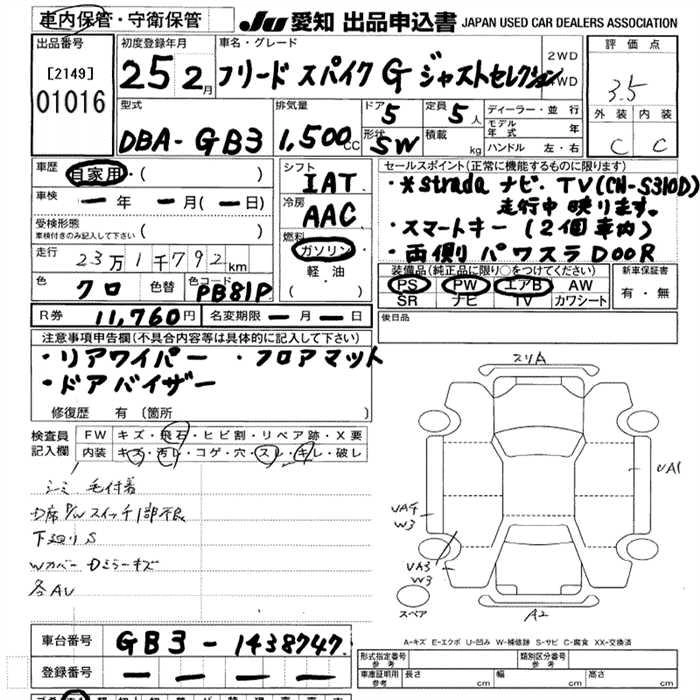 車内保管・守衛保管
JU 愛知 出品申込書 JAPAN USED CAR DEALERS ASSOCIATION
出品番号
[2149]
01016
初度登録年月
25 2月
車名・グレード
フリード スパイク G ジャストセレクション
2WD
4WD
評価点
3.5
外装 内装
C C
型式
DBA-GB3
排気量
1,500cc
ドア
5
形状
SW
定員
5人
積載
kg
ディーラー・並行
モデル年式 年
ハンドル 左・右
車歴
自家用・( )
車検
ー年 ー月(ー日)
受検形態
車検付きのみ記入して下さい ( )
走行
23万1千792km
色
クロ
色替
色コード
PB81P
シフト
IAT
冷房
AAC
燃料
ガソリン
軽油
( )
セールスポイント(正常に機能するものに限ります)
・*strada ナビ・TV(CN-S310D)
走行中映ります。
・スマートキー(2個車内)
・両側パワスラDOOR
装備品(純正品に限り○をつけてください)
PS PW エアB AW
SR ナビ TV カワシート
新車保証書
有・無
R券 11,760円
名変期限 ー月ー日
後日品
注意事項申告欄(不具合内容等は具体的に記入して下さい)
・リアワイパー ・フロアマット
・ドアバイザー
修復歴 有 (箇所 )
検査員記入欄
FW キズ・飛石・ヒビ割・リペア跡・X要
内装 キズ・汚レ・コゲ・穴・スレ・キレ・破レ
シミ 毛付着
D席P/Wスイッチ1部不良
下廻りS
Wカバー Dミラーキズ
各AU
スリA
UA1
UA4
W3
UA3
W3
スペア
A2
A-キズ E-エクボ U-凹み W-補修跡 S-サビ C-腐食 XX-交換済
車台番号 GB3-1438747.
登録番号 ー ー ー ー
形式指定番号
参考
類別区分番号
参考
車庫証明用
参考
長さ cm
幅 cm
高さ cm